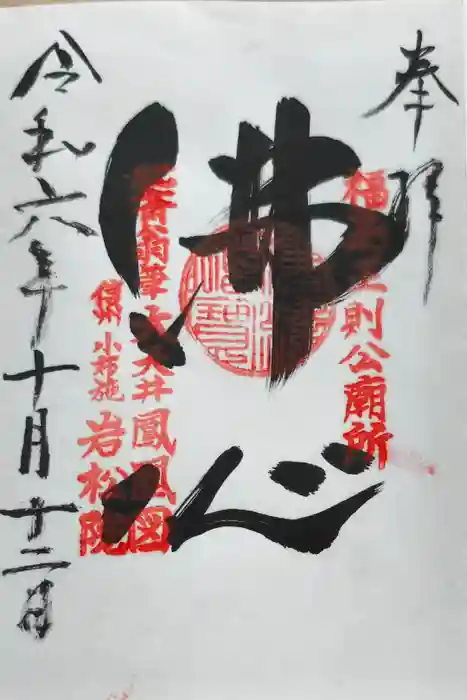 奉拝
福島正則公廟所
佛心
北斎翁筆 天井 大鳳凰図
信州 小布施 岩松院
令和六年十月十二日